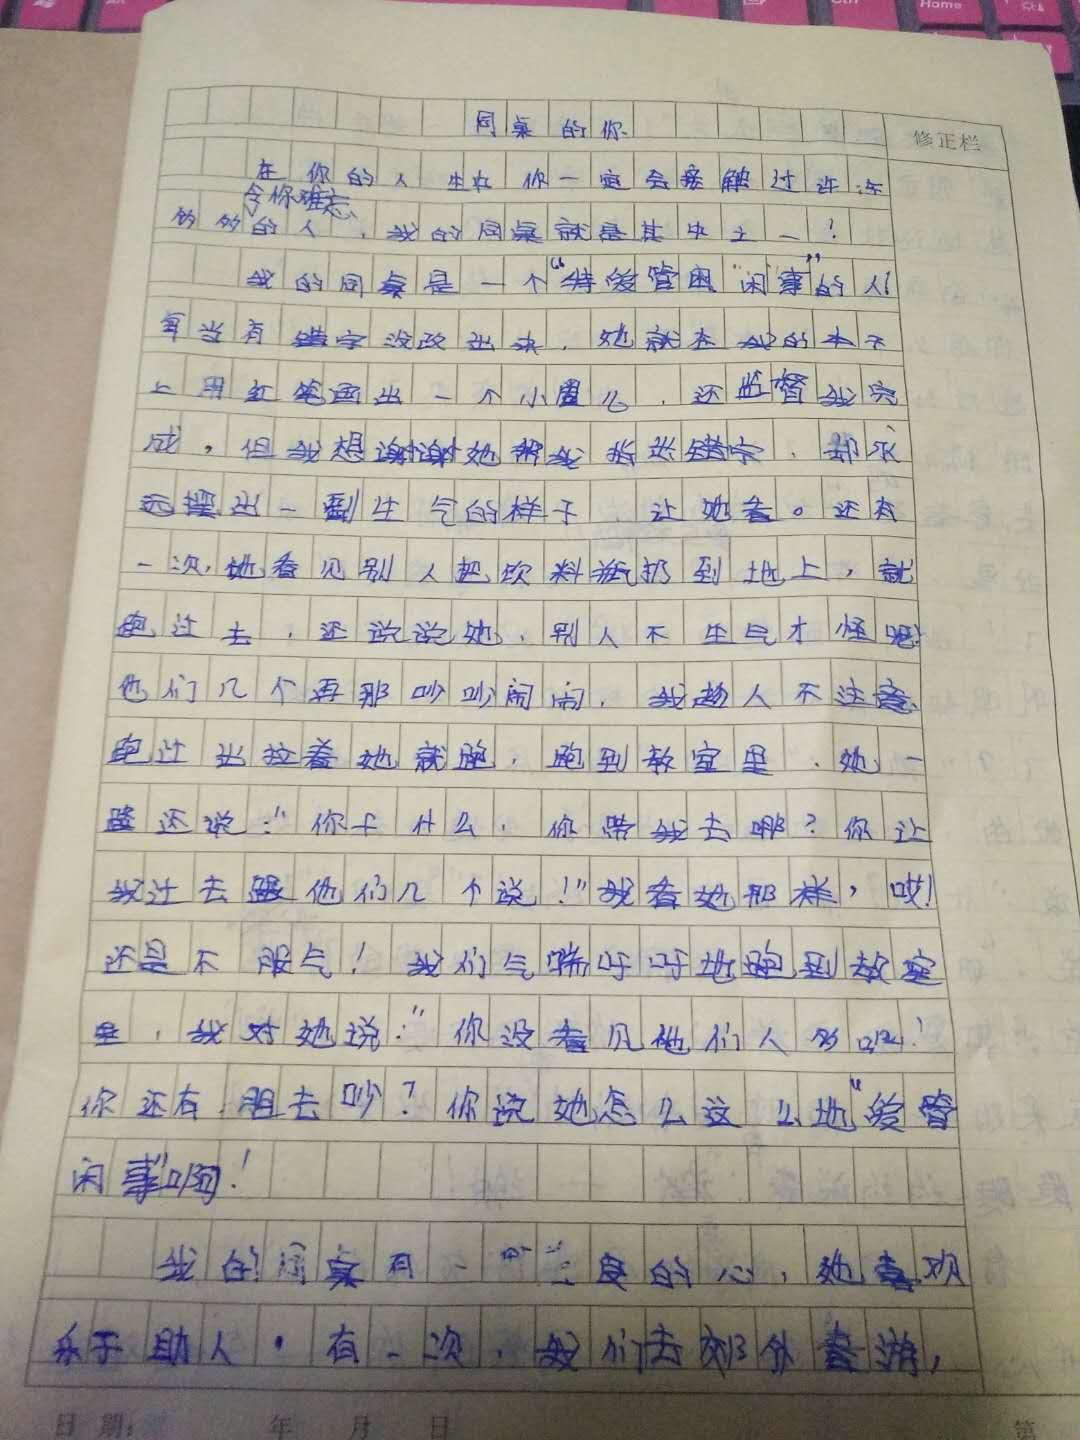 同桌的你
修正栏
在你的人生在你一定会接触过许许
令你难忘
多多的人，我的同桌就是其中之一！
我的同桌是一个“特爱管“闲事”的人！
每当有错字没改出来，她就在我的本子
上用红笔画出一个小圈儿，还监督我完
成，但我想谢谢她帮我错字，却永
远摆出一副生气的样子，让她看。还有
一次，她看见别人把饮料瓶扔到地上，就
跑过去，还说说她，别人不生气才怪呢！
他们几个再那吵吵闹闹，我趁人不注意
跑过去拉着她就跑，跑到教室里，她一
路还说：“你干什么，你带我去哪？你让
我过去跟他们几个说！”我看她那样，哎！
还是不服气！我们气喘吁吁地跑到教室
里，我对她说：“你没看见他们人多吗！
你还有胆去吵？你说她怎么这么地“爱管
闲事”啊！
我的同桌有一善良的心，她喜欢
乐于助人。有一次，我们去郊外春游，
日 期： 年 月 日
第